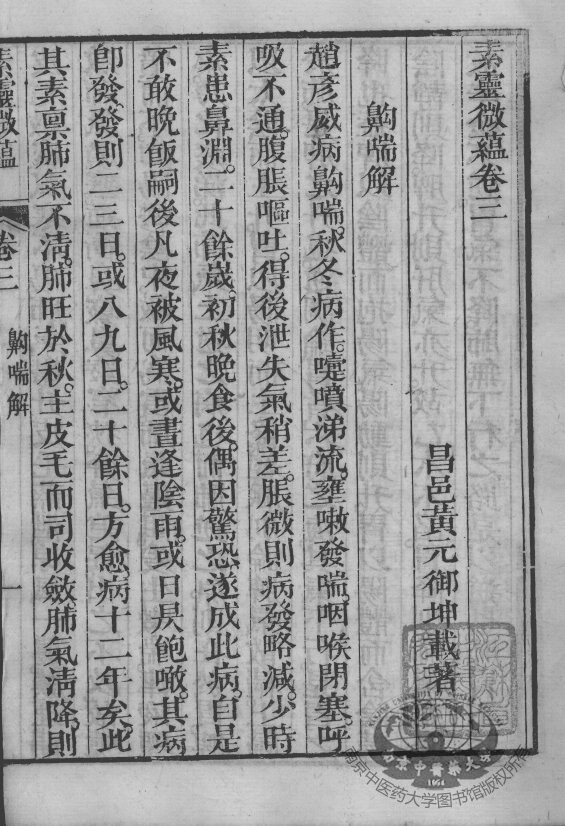 素靈微蘊卷三
昌邑黃元御坤載著
齁喘解
趙彥威病齁喘。秋冬病作。嚏噴涕流。壅嗽發喘。咽喉閉塞。呼
吸不通。腹脹嘔吐。得後泄失氣稍差。脹微則病發略減。少時
素患鼻淵。二十餘歲。初秋晚食後。偶因驚恐。遂成此病。自是
不敢晚飯。嗣後凡夜被風寒。或晝逢陰雨。或日昃飽噉。其病
卽發。發則二三日。或八九日。二十餘日。方愈。病十二年矣。此
其素稟肺氣不清。肺旺於秋。主皮毛而司收斂。肺氣清降。則
素靈微蘊
卷三
齁喘解
一
南京中医药大学图书馆版权所有
南京中醫藥大學
1954